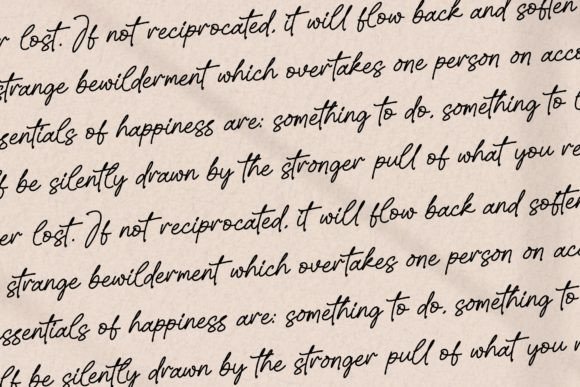 er lost. If not reciprocated, it will flow back and soften
strange bewilderment which overtakes one person on acco
ssentials of happiness are: something to do, something to
f be silently drawn by the stronger pull of what you re
er lost. If not reciprocated, it will flow back and soften
strange bewilderment which overtakes one person on acc
essentials of happiness are: something to do, something to
lf be silently drawn by the stronger pull of what you